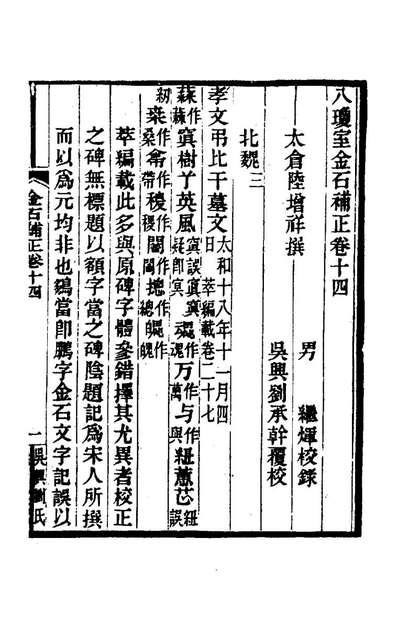 八瓊室金石補正卷十四
太倉陸增祥撰
男 繼煇校錄
吳興劉承幹覆校
北魏三
孝文弔比干墓文 太和十八年十一月四日 萃編載卷二十七
蘇作蘓 寘樹丫英風 寘誤寘 寘疑卽冥 䰟作魂 万作萬 与作與 紐蕙芯 紐誤
紉 桒作桑 㡜作帶 稷作稷 閽作閽 揔作總 䰟作魄
萃編載此多與原碑字體參錯擇其尤異者校正
之碑無標題以額字當之碑陰題記爲宋人所撰
而以爲元均非也鷭當卽鵬字金石文字記誤以
金石補正卷十四
一
吳興劉氏